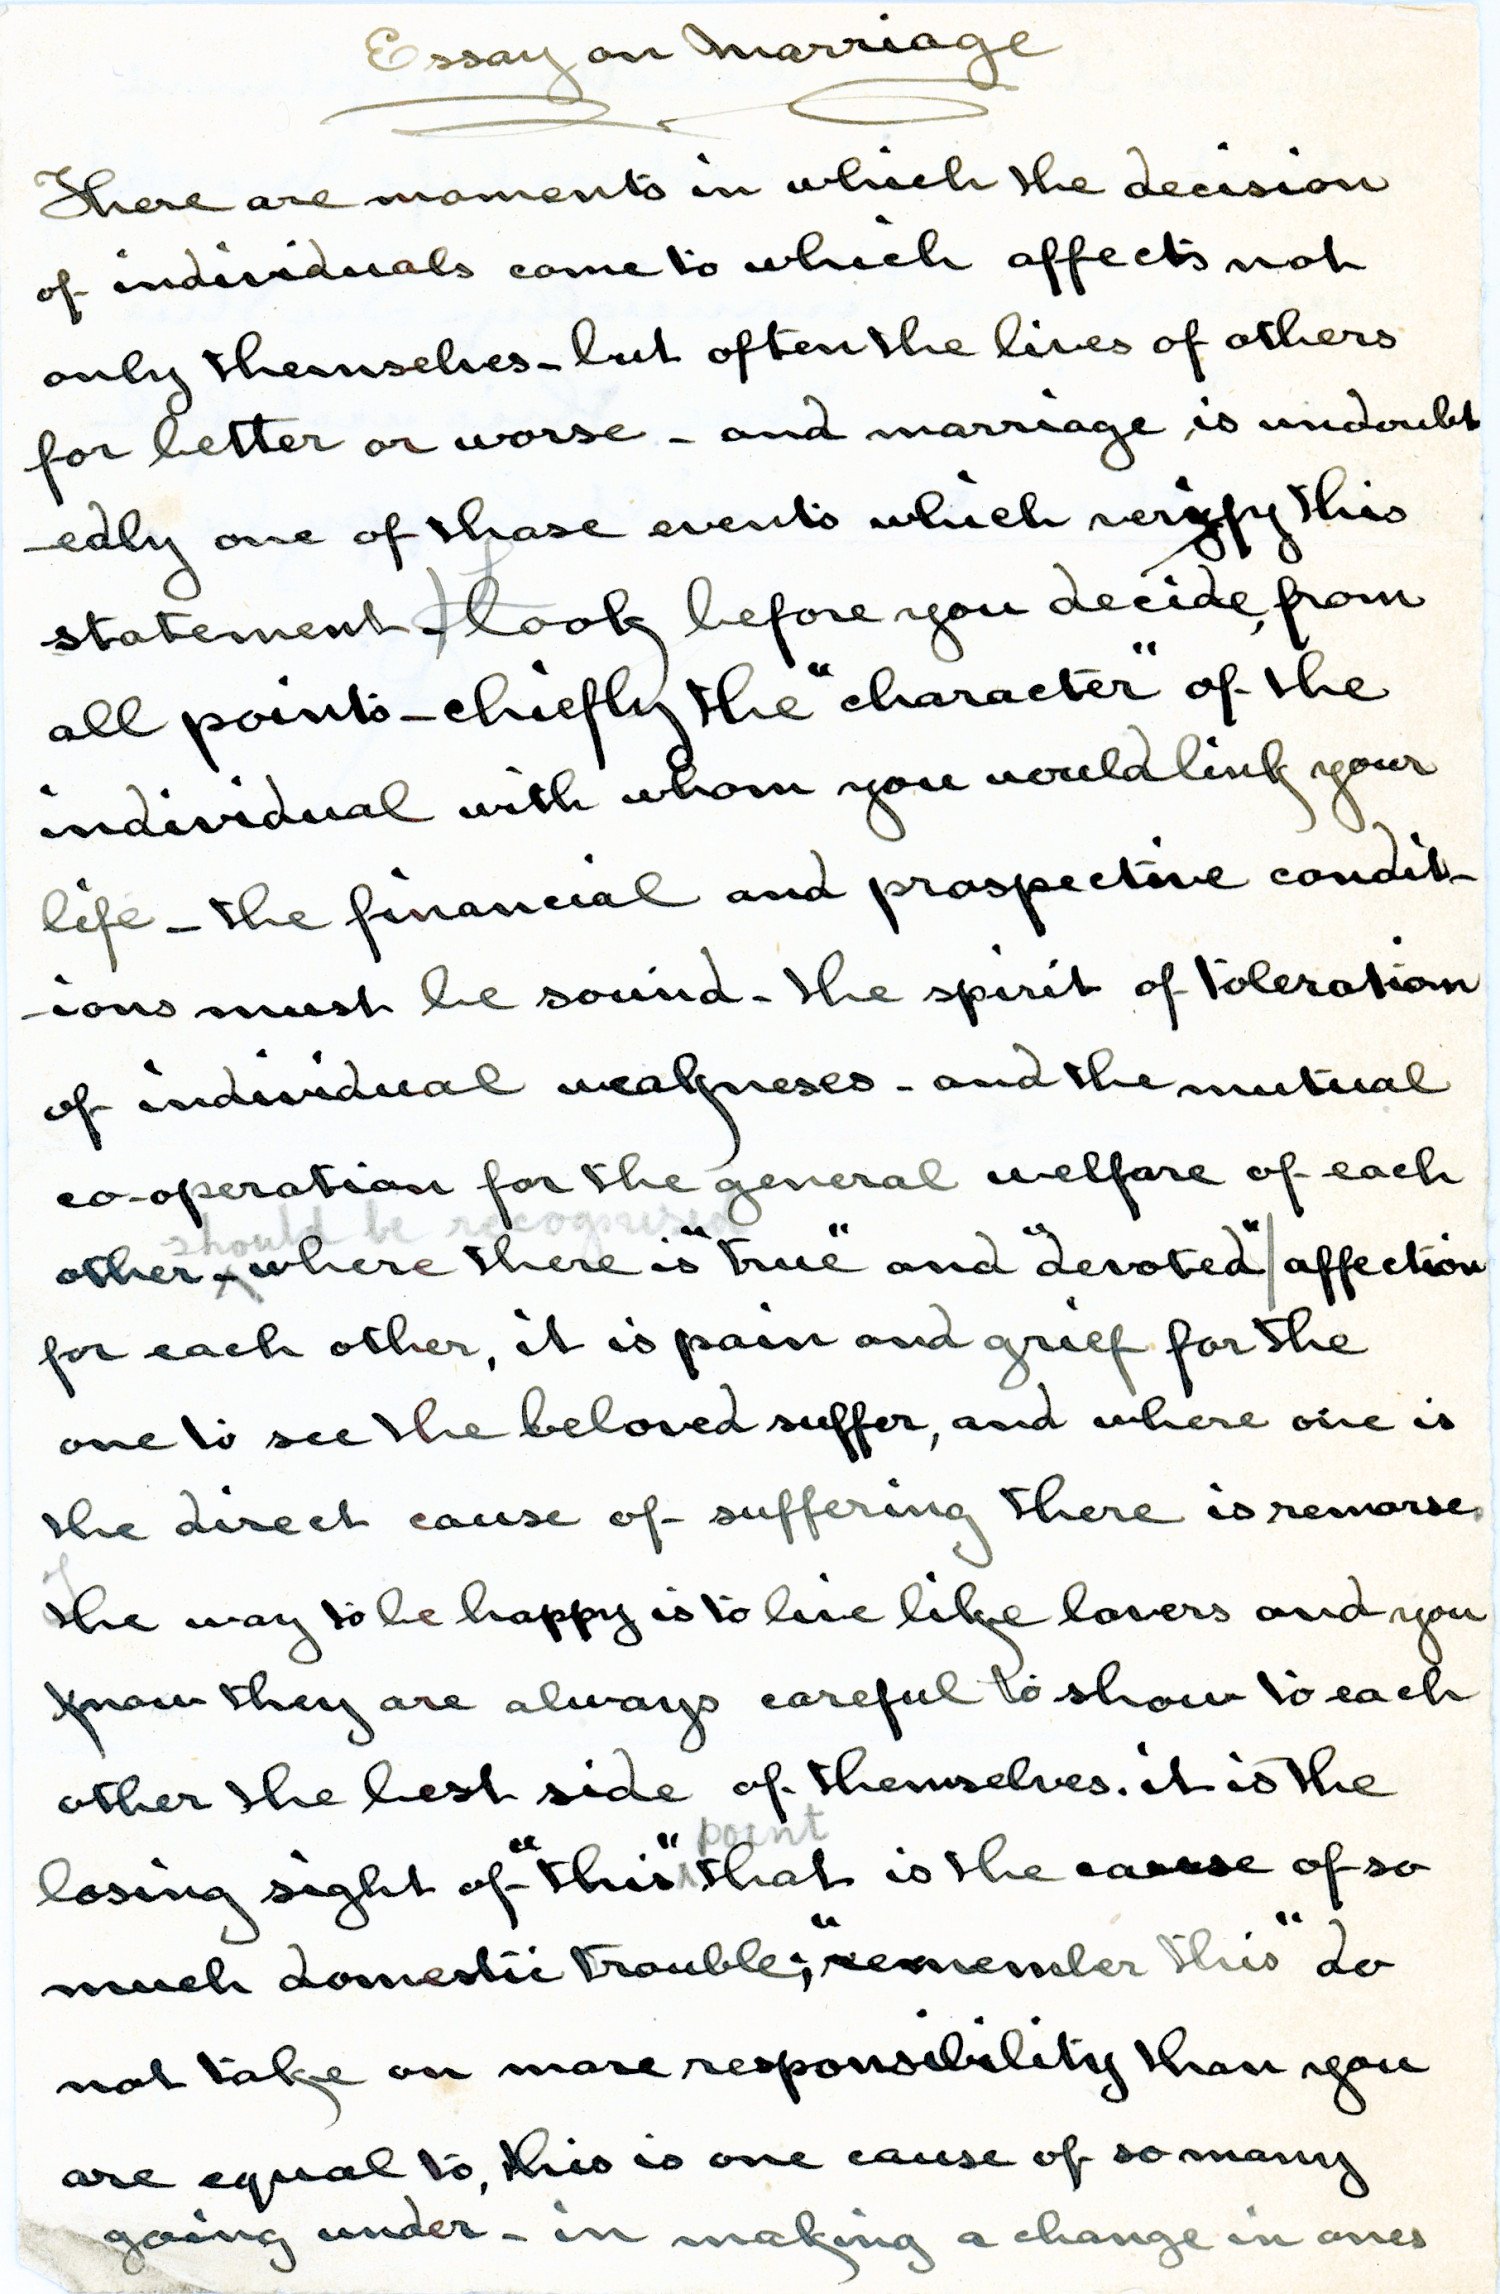 Essay on Marriage
There are moments in which the decision
of individuals come to which affects not
only themselves - but often the lives of others
for better or worse - and marriage is undoubt
-edly one of those events which verify this
statement - look before you decide, from
all points - chiefly the "character" of the
individual with whom you would link your
life - the financial and prospective condit-
-ions must be sound - the spirit of toleration
of individual weakneses - and the mutual
co-operation for the general welfare of each
should be recognised
other - where there is "true" and "devoted" affection
for each other, it is pain and grief for the
one to see the beloved suffer, and where one is
the direct cause of suffering there is remorse.
The way to be happy is to live like lovers and you
know they are always careful to show to each
other the best side of themselves. it is the
point
losing sight of "this" that is the cause of so
much domestic trouble; "remember this" do
not take on more responsibility than you
are equal to, this is one cause of so many
going under - in making a change in ones